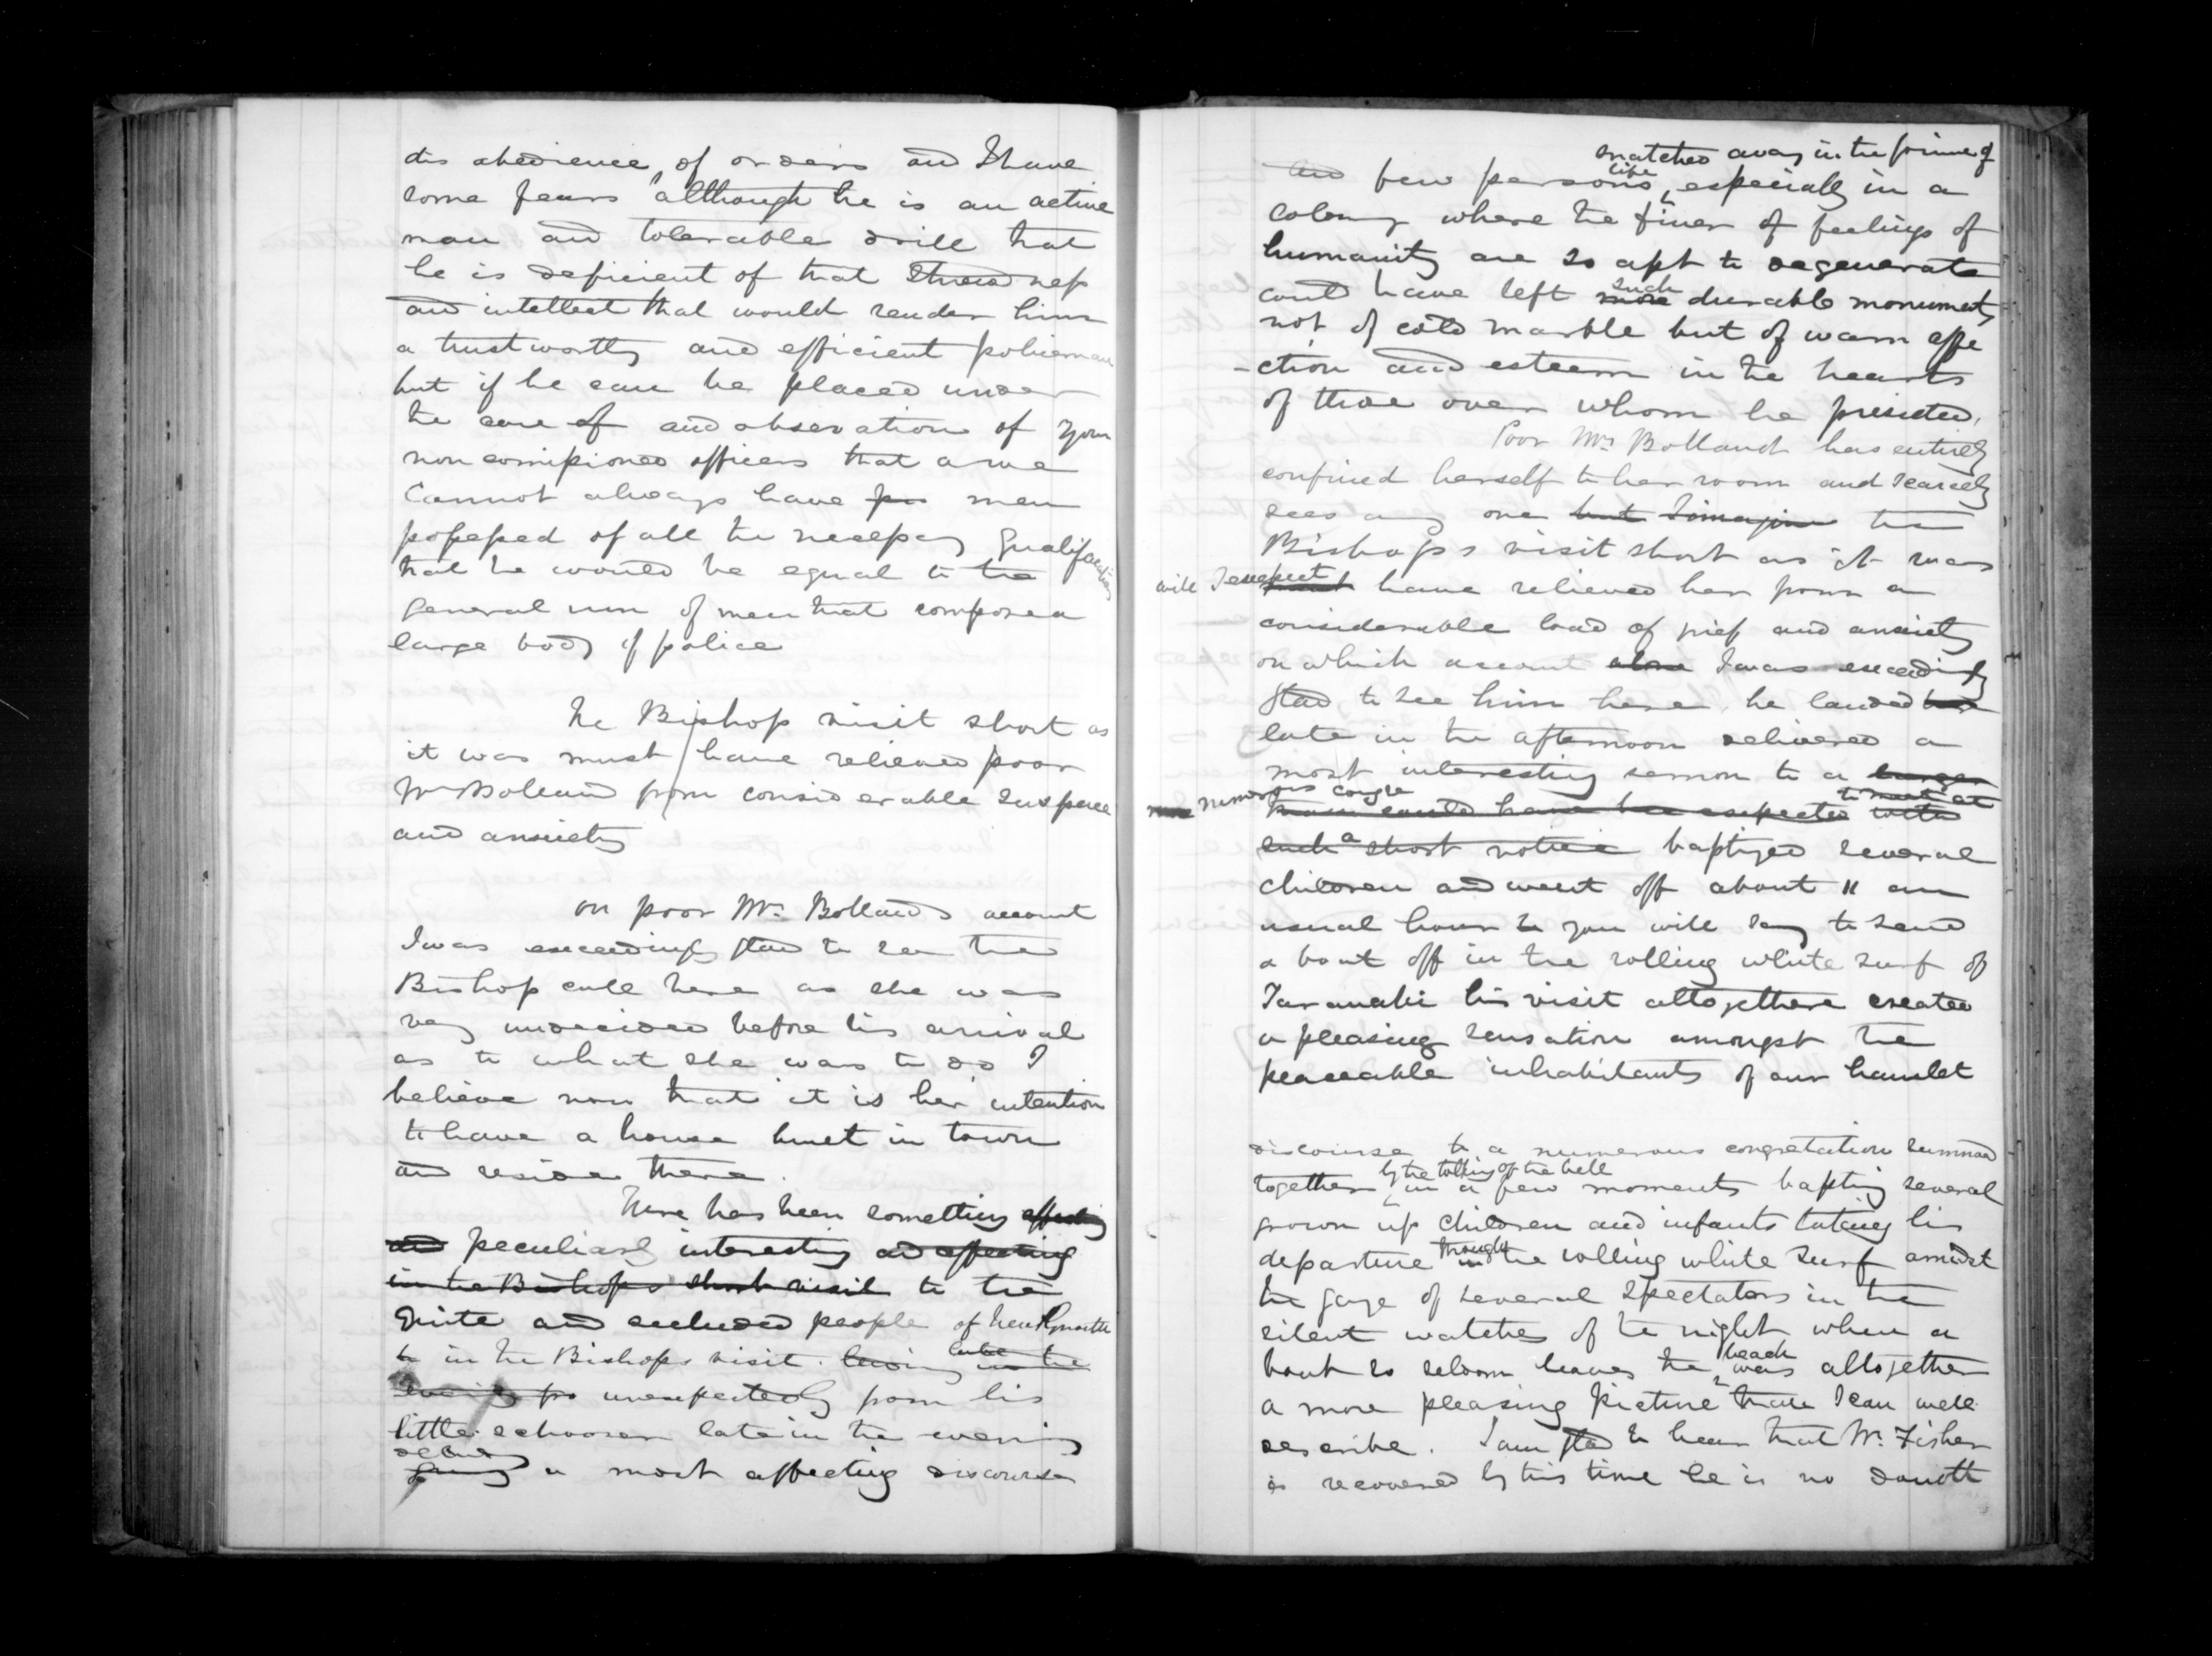 dis obedience, of orders and I have
some fears although he is an active
man and tolerable drill that
he is deficient of that Shrewdness
and intellect that would render him
a trustworthy and efficient policeman
but if he can be placed under
the care of and observation of your
non comissioned officers that as we
Cannot always have for men
possessed of all the necessary Qualifications
that he would be equal to the
general run of men that compose a
large body of police
The Bishop visit short as
it was must have relieved poor
Mrs Bolland from considerable suspense
and anxiety
on poor Mrs Bollands account
I was exceedingly glad to see the
Bishop call here as she was
very undecided before his arrival
as to what she was to do I
believe now that it is her intention
to have a house built in town
and reside there.
There has been something affecting
and peculiarly interesting and affecting
in the Bishops short visit to the
Quite and secluded people of New Plymouth
to in the Bishops visit. late in the
evening unexpectedly from his
little schooner late in the evening
a most affecting discourse
snatched away in the prime of
life
and few persons, especially in a
colony where the finer of feelings of
humanity are so apt to degenerate
such
could have left more durable monuments,
not of cold marble but of warm affe
-ction and esteem in the hearts
of those over whom he presided.
Poor Mrs Bolland has entirely
confined herself to her room and scarcely
sees any one but I imagine the
Bishops visit short as it was
will I expect must have relieved her from a
considerable load of grief and anxiety
on which account alone I was exceedingly
glad to see him here. he landed here
late in the afternoon delivered a
most interesting sermon to a larger
numerous congre to meet at
than could have been expected with
such a short notice baptized several
children and went off about 11 an
usual hour to you will say to send
a boat off in the rolling white surf of
Taranaki his visit altogethere created
a pleasing sensation amongst the
peaceable inhabitants of our hamlet
discourse to a numerous congretation summond
by the tolling of the bell
together, in a few moments bapting several
grown up children and infants taking his
through
departure in the rolling white surf amidst
the gaze of several Spectators in the
silent watches of the night when a
beach
boat so seldom leaves the, was altogether
a more pleasing Picture than I can well
describe. I am glad to hear that Mr. Fisher
is recovered by this time he is no doubt